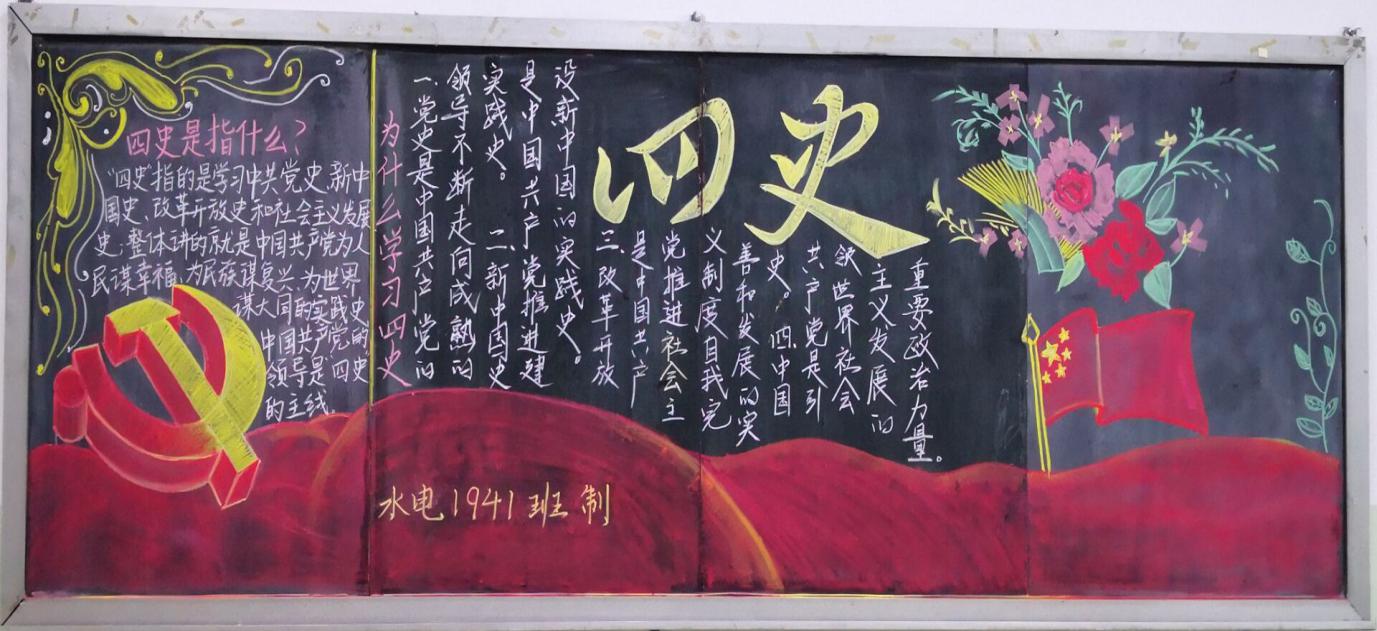 四史
四史是指什么?
"四史"指的是学习中共党史、新中
国史、改革开放史和社会主义发展
史,整体讲的就是中国共产党为人
民谋幸福、为民族谋复兴、为世界
谋大国的实践史
中国共产党的
领导是"四史"
的主线。
为什么学习四史
一.党史是中国共产党的
领导不断走向成熟的
实践史。 二、新中国史
是中国共产党推进建
设新中国的实践史。
三、改革开放
是中国共产
党推进社会主
义制度自我完
善和发展的实
史。四、中国
共产党是引
领世界社会
主义发展的
重要政治力量。
水电1941班制